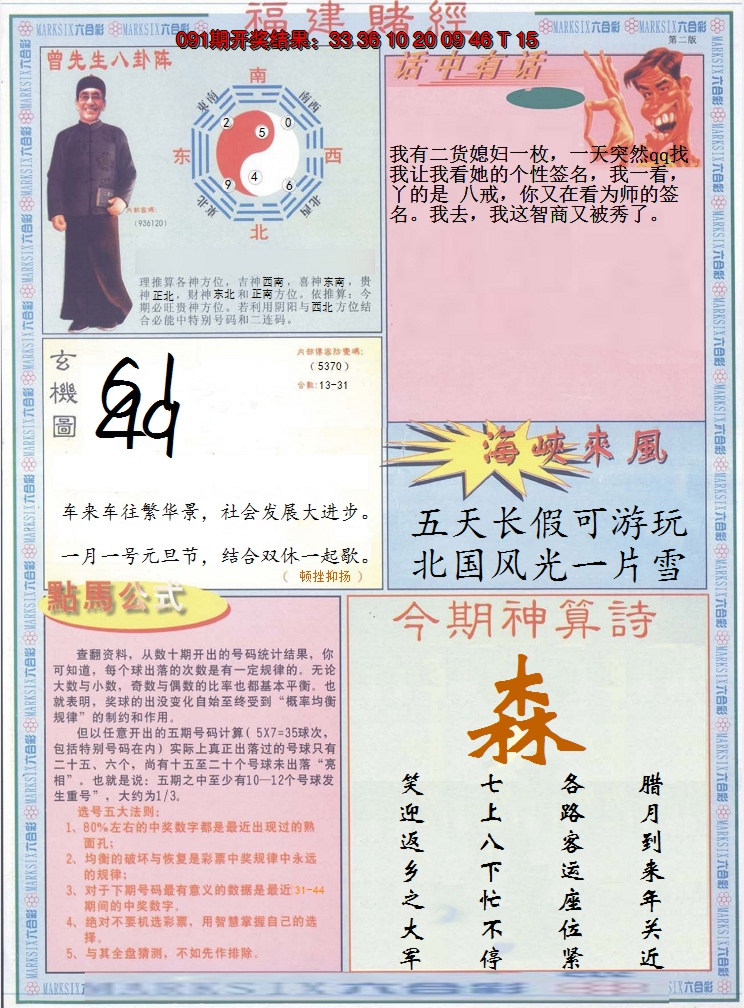 福建賭經
091期开奖结果：33 36 10 20 09 46 T 15
第二版
MARKSIX六合彩
曾先生八卦阵
南
东南
南西
2
5
0
东
西
9
4
6
東北
北西
北
内部密碼：
（936120）
理推算各神方位，吉神西南，喜神东南，贵
神正北，财神东北和正南方位。依推算：今
期必旺贵神方位。若利用阴阳与西北方位结
合必能中特别号码和二连码。
话中有话
我有二货媳妇一枚，一天突然qq找
我让我看她的个性签名，我一看，
丫的是 八戒，你又在看为师的签
名。我去，我这智商又被秀了。
玄機圖
（5370）
合数:13-31
车来车往繁华景，社会发展大进步。
一月一号元旦节，结合双休一起歇。
（ 顿挫抑扬 ）
海峽來風
五天长假可游玩
北国风光一片雪
點馬公式
查翻资料，从数十期开出的号码统计结果，你
可知道，每个球出落的次数是有一定规律的。无论
大数与小数，奇数与偶数的比率也都基本平衡。也
就表明，奖球的出没变化自始至终受到“概率均衡
规律”的制约和作用。
但以任意开出的五期号码计算（ 5X7=35球次，
包括特别号码在内）实际上真正出落过的号球只有
二十五、六个，尚有十五至二十个号球未出落“亮
相”。也就是说：五期之中至少有10—12个号球发
生重号”，大约为1/3。
选号五大法则：
1、80%左右的中奖数字都是最近出现过的熟
面孔；
2、均衡的破坏与恢复是彩票中奖规律中永远
的规律；
3、对于下期号码最有意义的数据是最近31-44
期间的中奖数字。
4、绝对不要机选彩票，用智慧掌握自己的选
择。
5、与其全盘猜测，不如先作排除。
今期神算詩
森
腊月到来年关近
各路客运座位紧
七上八下忙不停
笑迎返乡之大军